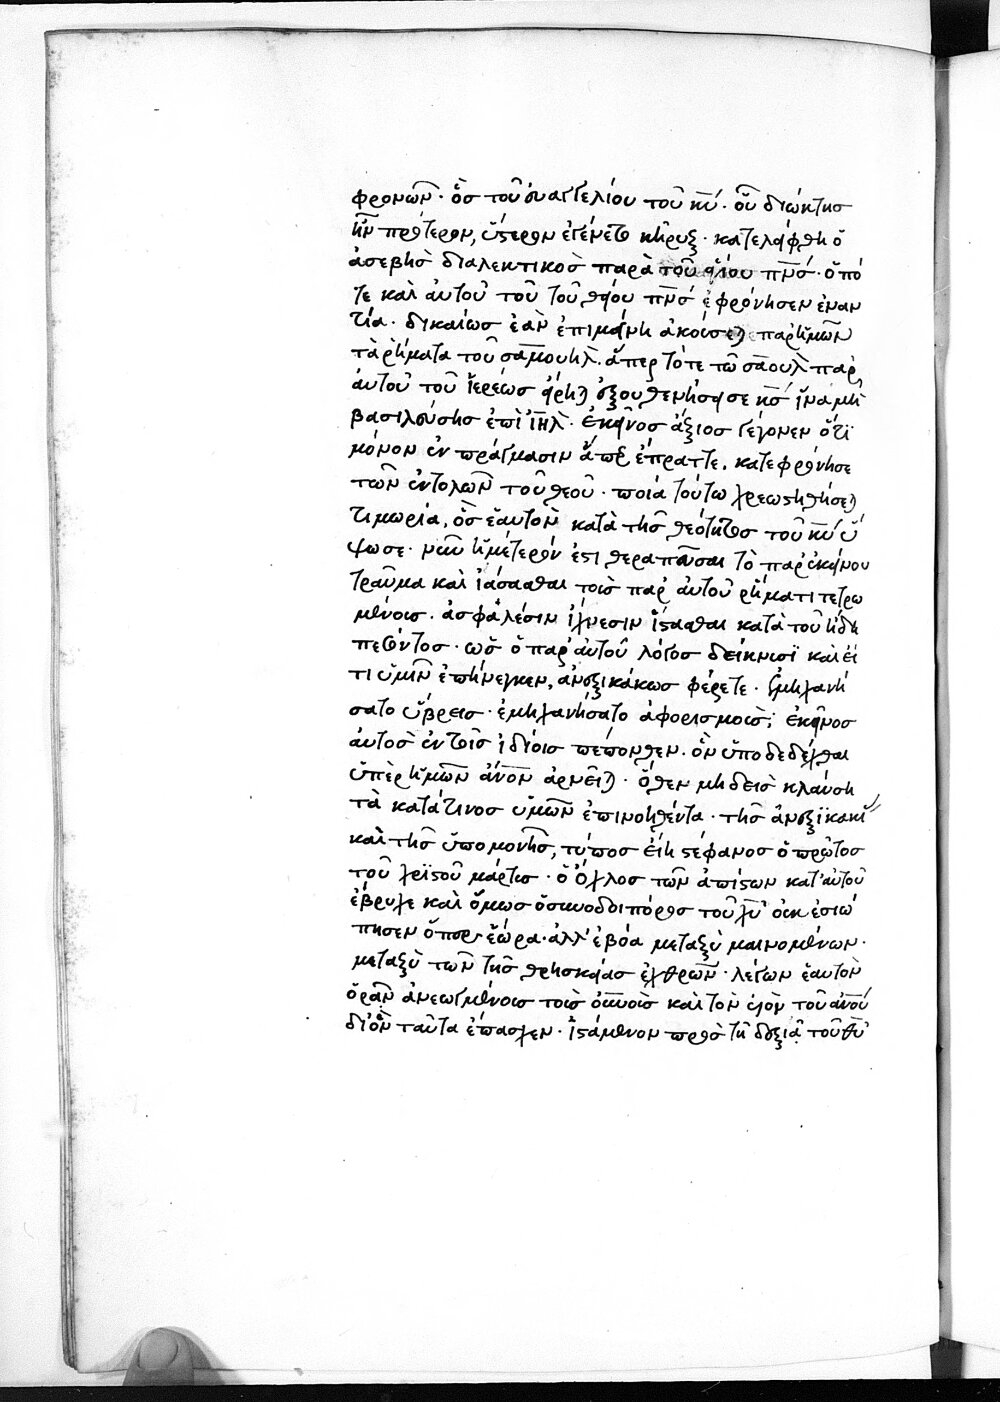 φρονῶν· ὃς τοῦ ἐυαγγελίου τοῦ κ̅υ̅· οὗ διώκτης
ἦν πρότερον, ὕστερον ἐγένετο κήρυξ· κατελείφθη ὁ
ἀσεβὴς διαλεκτικὸς παρὰ τοῦ ἁγίου π̅ν̅ς̅· ὁπό
τε καὶ ἀυτοῦ τοῦ τοῦ θείου π̅ν̅ς̅ ἐφρόνησεν ἐναν
τία· δικαίως ἐὰν ἐπιμείνη ἀκούσεται παρ' ἡμῶν
τὰ ῥήματα τοῦ σαμουὴλ. ἅπερ τότε τῶ σαοὺλ παρ'
ἀυτοῦ τοῦ ἱερέως εἴρηται ἐξουθενήσει σε κ̅ς̅ ἵνα μὴ
βασιλεύσης ἐπὶ ἰ̅η̅λ̅· ἐκεῖνος ἄξιος γέγονεν ὅτι
μόνον ἐν πράγμασιν ἅπερ ἔπραττε, κατεφρόνησε
τῶν ἐντολῶν τοῦ θεοῦ· ποία τούτω χρεωστηθήσεται
τιμωρία, ὃς ἑαυτὸν κατὰ τῆς θεότητος τοῦ κ̅υ̅ ὕ
ψωσε· νῦν ἡμέτερόν ἐστι θεραπεῦσαι τὸ παρ' ἐκείνου
τραῦμα καὶ ἰάσασθαι τοῖς παρ' ἀυτοῦ ῥήματι τετρω
μένοις· ἀσφαλέσιν ἴχνεσιν ἵστασθαι κατὰ τοῦ ἤδη
πεσόντος· ὡς ὁ παρ' ἀυτοῦ λόγος δείκνυσι καὶ ἐί
τι ὑμῖν ἐπήνεγκεν, ἀνεξικάκως φέρετε· ἐμηχανή
σατο ὕβρεις· ἐμηχανήσατο ἀφορισμοὺς; ἐκεῖνος
ἀυτὸς ἐν τοῖς ἰδίοις πέπονθεν· ὃν ὑποδεδέχθαι
ὑπὲρ ἡμῶν ἄ̅ν̅ο̅ν̅ ἀρνεῖται· ὅθεν μηδεὶς κλαύση
τὰ κατά τινος ὑμῶν ἐπινοηθέντα· τῆς ἀνεξικακί
καὶ τῆς ὑπομονῆς, τύπος ἔιη στέφανος ὁ πρῶτος
τοῦ χριστοῦ μάρτυς· ὁ ὄχλος τῶν ἀπίστων κατ' ἀυτοῦ
ἔβρυχε καὶ ὅμως ὁ συνοδοιπόρος τοῦ χ̅υ̅ οὐκ ἐσιώ
πησεν ὅπερ ἑώρα· ἀλλ' ἐβόα μεταξὺ μαινομένων·
μεταξὺ τῶν τῆς θρησκείας ἐχθρῶν· λέγων ἑαυτὸν
ὁρᾶν ἀνεωγμένους τοὺς οὐ̅ν̅οὺς καὶ τὸν υἱὸν τοῦ ἀ̅ν̅ο̅υ̅
δι' ὃν ταῦτα ἔπασχεν· ἱστάμενον πρὸς τῆ δεξιᾶ τοῦ θ̅υ̅